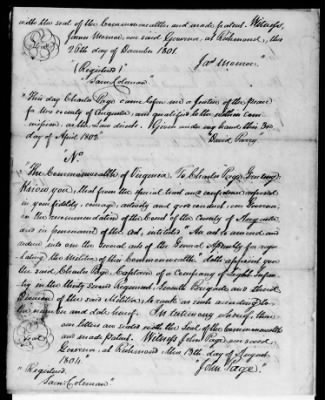 with the seal of the Commonwealth and made patent. Witness,
James Monroe our said Governor, at Richmond, this
26th day of December 1801.
Jas Monroe."
(Registered)
"Sam Coleman"
"This day Charles Page came before me a Justice of the Peace
for the county of and qualified to the within com-
mission as the Law directs. Given under my hand this 3rd
day of April 1802"
"David
"No
"The Commonwealth of Virginia, To Charles Page Greeting
Know you, that from the special trust and confidence reposed
in your fidelity, courage, activity and good conduct, our Governor,
on the recommendation of the Court of the County of Augusta
and in pursuance of the Act, intituled "An act to amend and
reduce into one the several acts of the General Assembly for regu-
lating the Militia of this Commonwealth" doth appoint you
the said Charles Page Captain of a Company of Light Infan-
try in the thirty second Regiment, Seventh Brigade and third
Division of the said Militia, to rank as such according to
the number and date hereof. In testimony whereof, these
our letters are sealed with the Seal of the Commonwealth
and made Patent. Witness John Page our said
Governor, at Richmond this 13th day of August
1804."
"John Page"
"Registered
Sam Coleman"